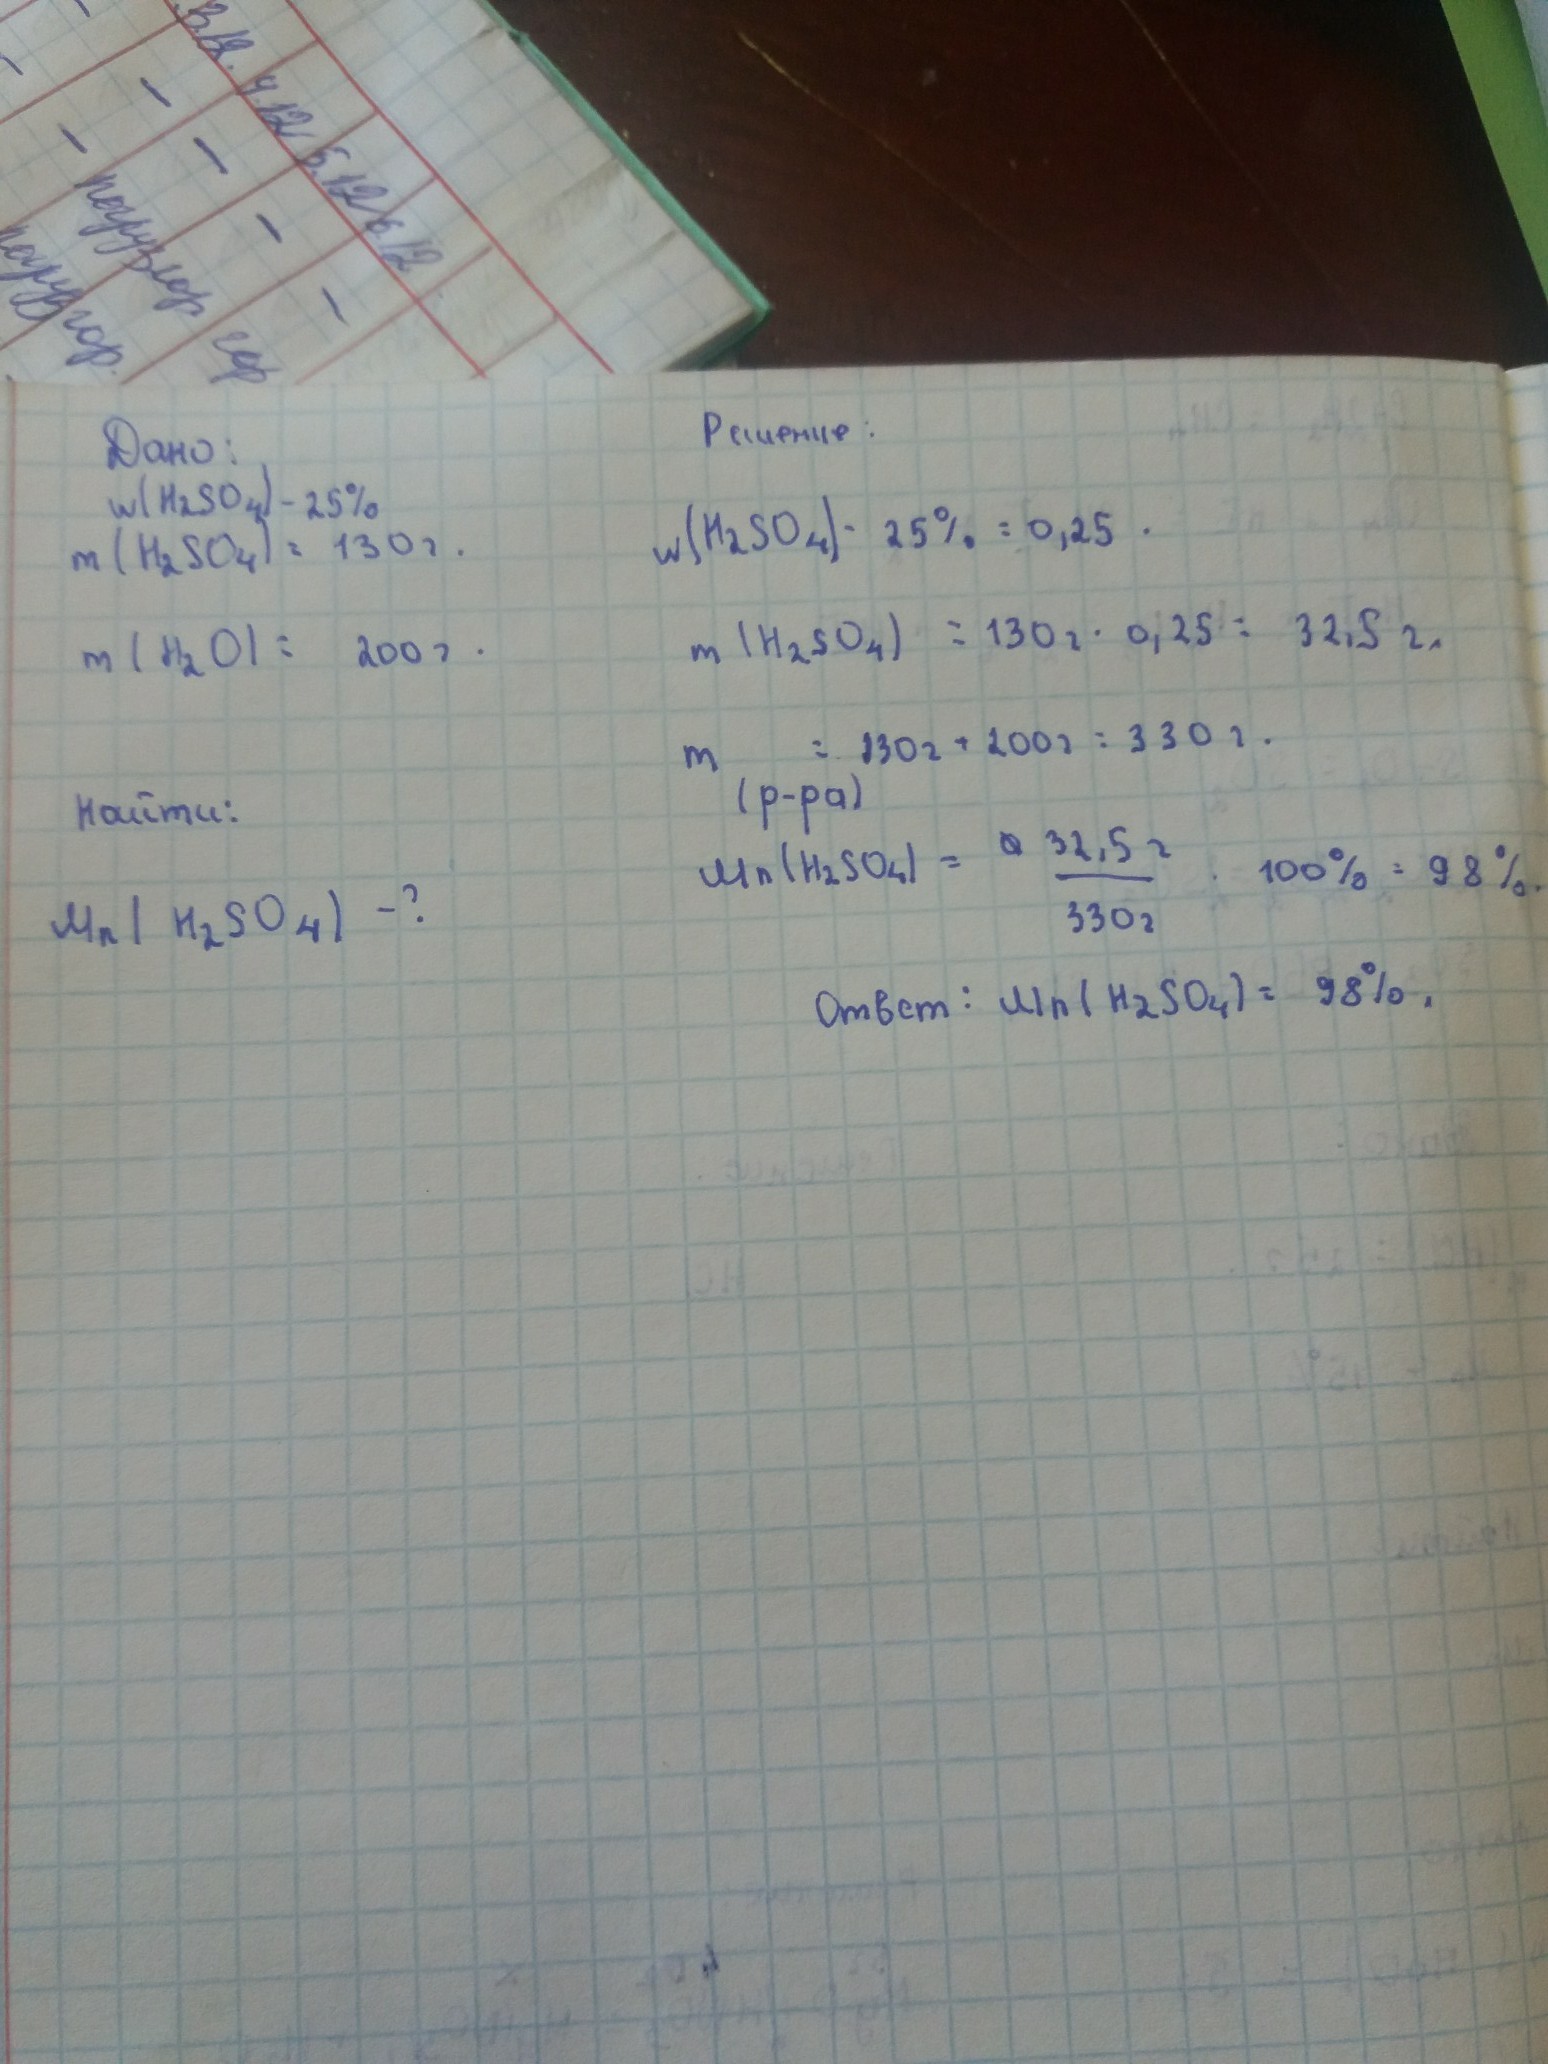 3.12. 4.12 5.12 6.12
Дано:
w(H₂SO₄) - 25%
m(H₂SO₄) = 130г.
m(H₂O) = 200г.
Найти:
Mn(H₂SO₄) - ?
Решение:
w(H₂SO₄) - 25% = 0,25.
m(H₂SO₄) = 130г · 0,25 = 32,5 г.
m = 130г + 200г = 330г.
(р-ра)
Mn(H₂SO₄) = 32,5г / 330г · 100% = 98%.
Ответ: Mn(H₂SO₄) = 98%.